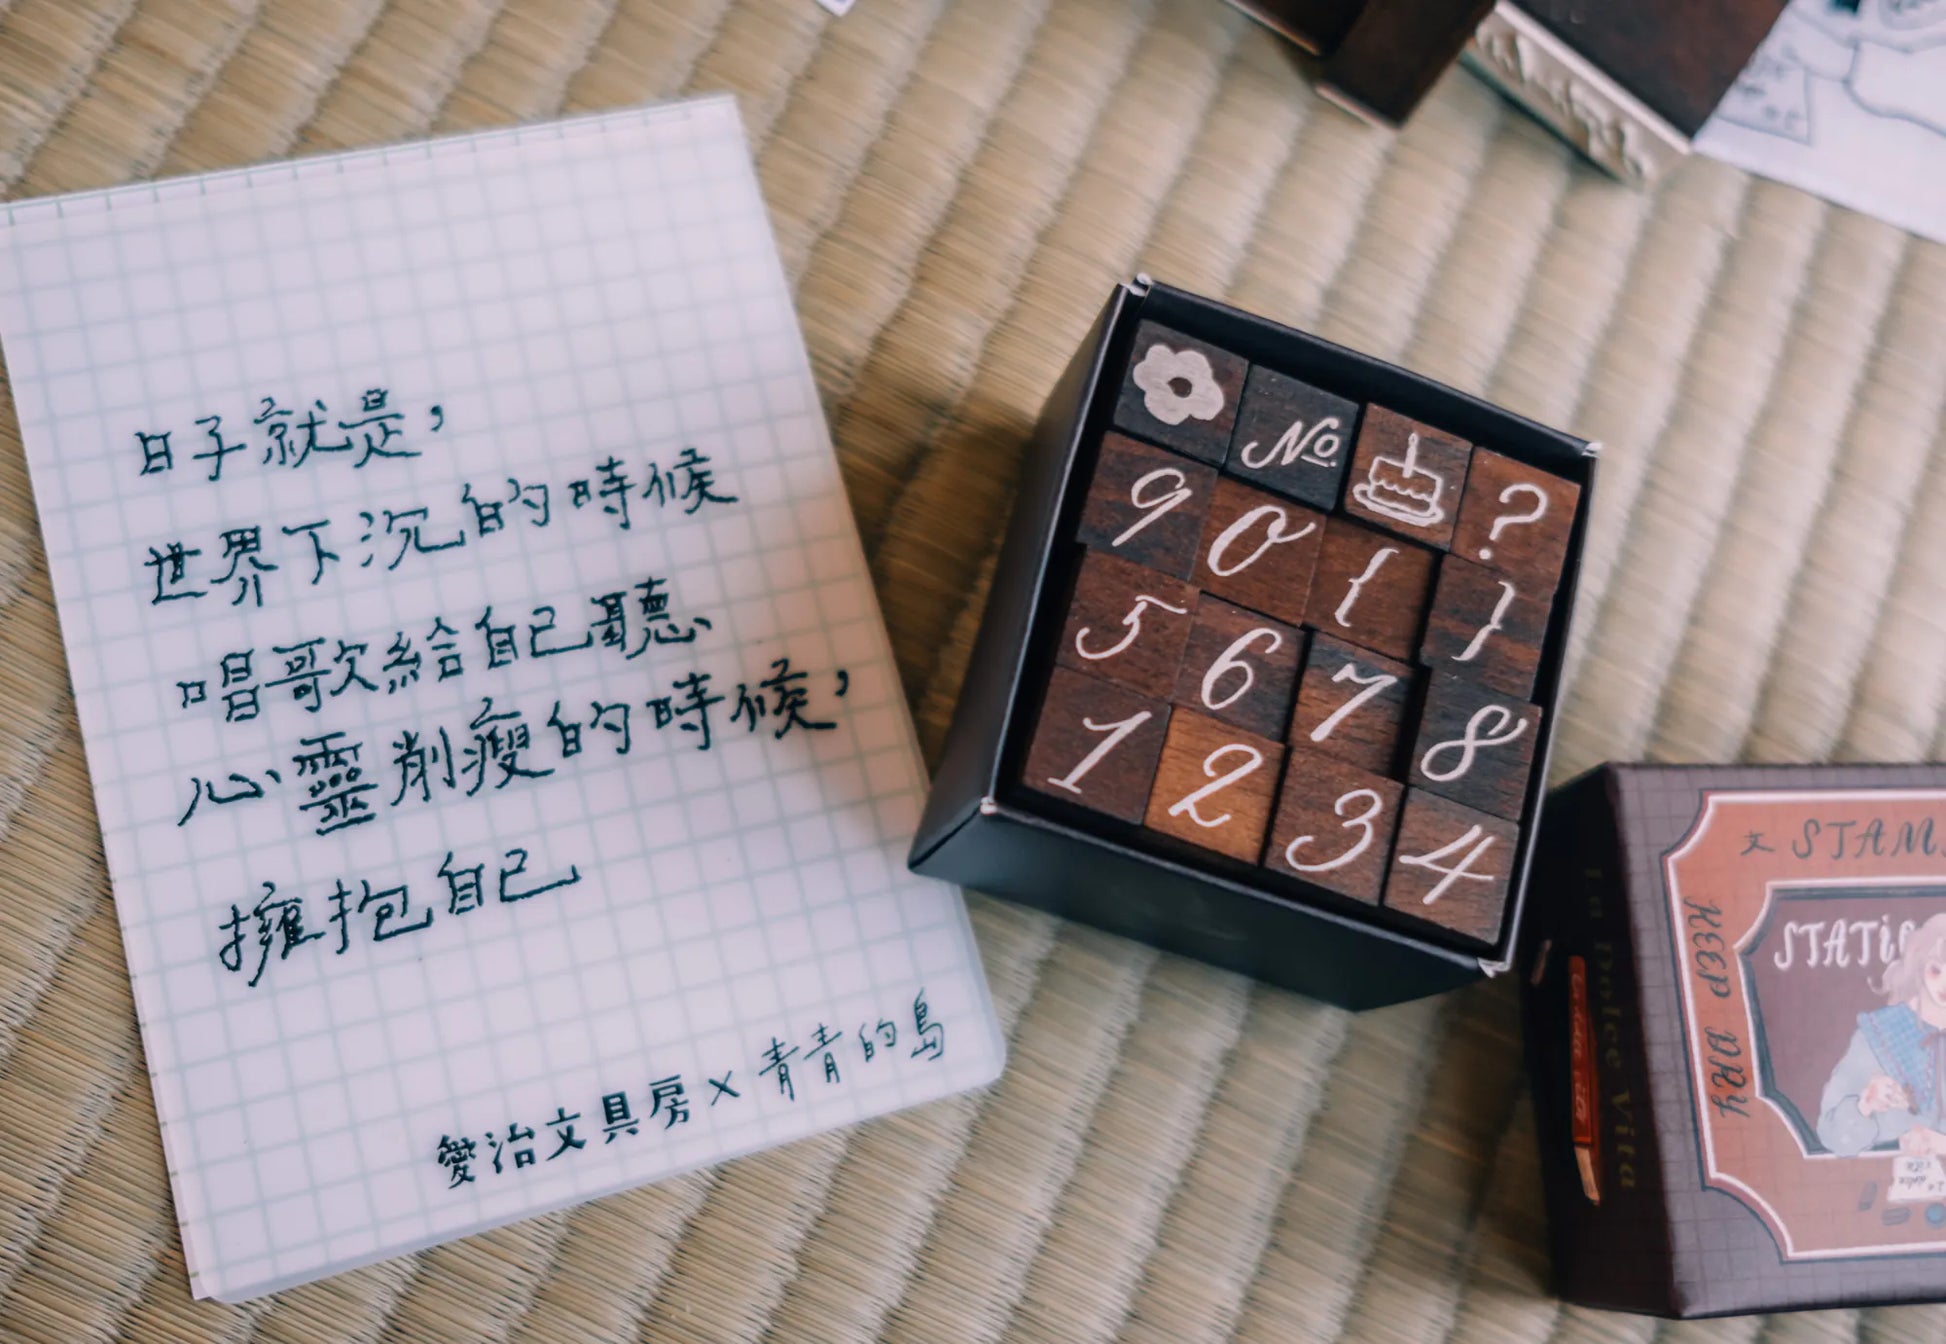 日子就是，
世界下沉的時候
唱歌給自己聽
心靈削瘦的時候，
擁抱自己
愛治文具房×青青的島
№ ?
9 0 { }
5 6 7 8
1 2 3 4
文 STAM
KEEP DRY
STATIO
La Dolce Vita